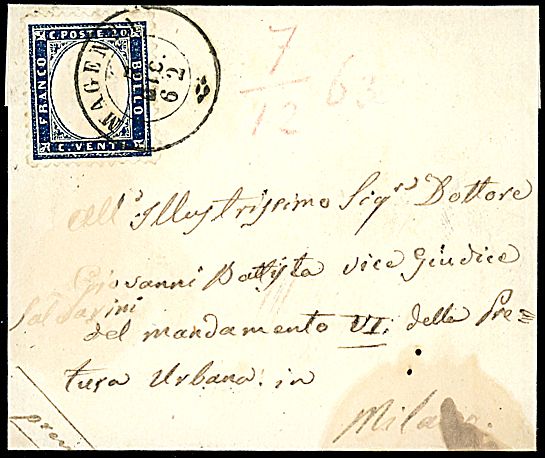 C. POSTE. 20
FRANCO
BOLLO
C. VENTI
MAGEN
DIC.
62
7
12 63
All' Illustrissimo Sigr Dottore
Giovanni Battista vice Giudice
Saldarini
del mandamento VI. della Pre=
tura Urbana: in
Milano.